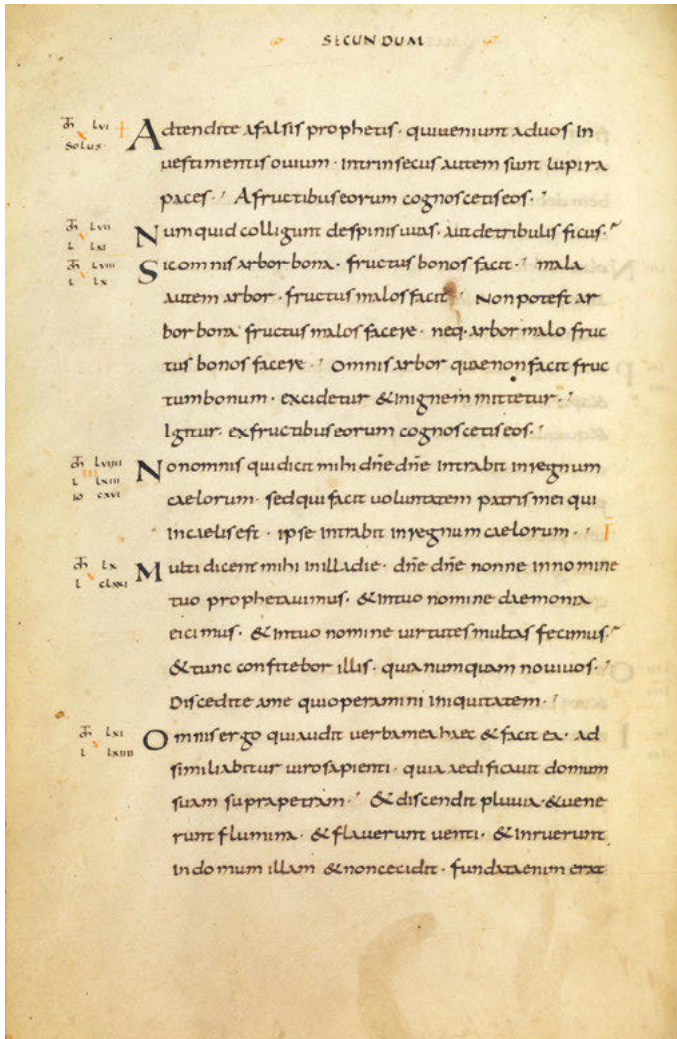 SECUNDUM
m̄ lvi
solus
Adtendite afalsis prophetis · quiveniunt aduos In
vestimentis ovium · Intrinsecus autem sunt lupira
paces · Afructibus eorum cognoscetiseos ·
m̄ lvii
l lxi
Numquid colligunt despinis uvas · aut detribulis ficus ·
m̄ lviii
l lx
Sicomnis arbor bona · fructus bonos facit · mala
autem arbor · fructus malos facit Non potest ar
bor bona fructus malos facere · neq · arbor malo fruc
tus bonos facere · Omnis arbor quae non facit fruc
tum bonum · excidetur & In ignem mittetur ·
Igitur · exfructibus eorum cognoscetiseos ·
m̄ lviiii
l lxiii
io cxvi
Nonomnis qui dicit mihi dn̄e dn̄e Intrabit In regnum
caelorum · sed qui facit voluntatem patris mei qui
In caelis est · ipse Intrabit In regnum caelorum ·
m̄ lx
l clxxi
Multi dicent mihi In illa die · dn̄e dn̄e nonne In nomine
tuo prophetavimus · & In tuo nomine daemonia
eicimus · & In tuo nomine virtutes multas fecimus ·
& tunc confitebor illis · quia numquam novi vos ·
Discedite ame qui operamini Iniquitatem ·
m̄ lxi
l lxiiii
Omnis ergo qui audit verba mea haec & facit ea · ad
similiabitur viro sapienti · quia aedificavit domum
suam supra petram · & discendit pluvia · & vene
runt flumina · & flaverunt venti · & Inruerunt
In domum illam & non cecidit · fundata enim erat